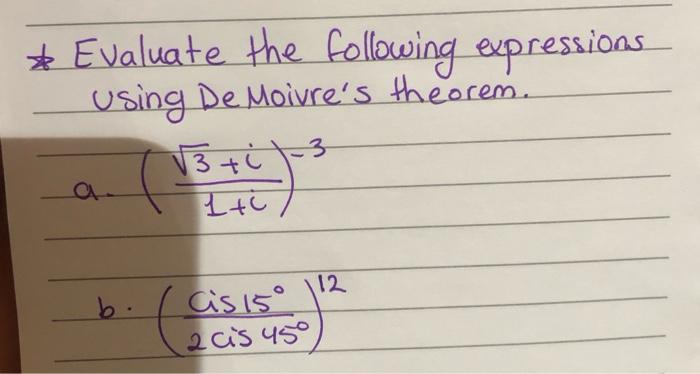 * Evaluate the following expressions
using De Moivre's theorem.
a. ((√3 + i)/(1 + i))^-3
b. ((Cis 15°)/(2 Cis 45°))^12